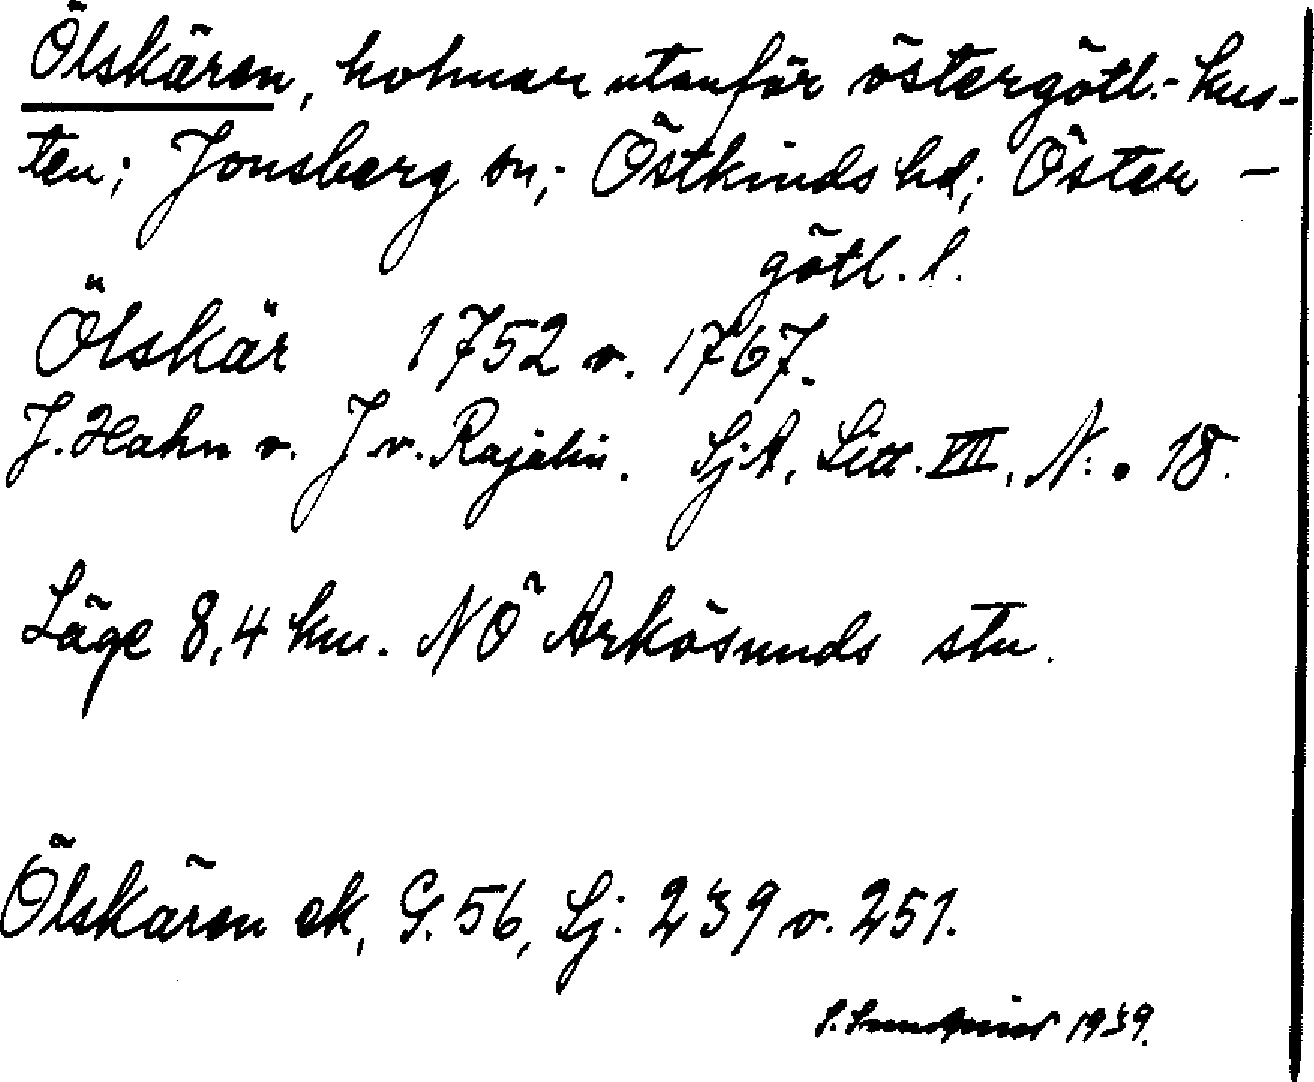 Ölskären, holmar utanför östergötl.- kus-
ten; Jonsberg sn; Östkinds hd; Öster-
götl. l.
Ölskär 1752 o. 1767.
J. Hahn o. J. v. Rajalin. SjA, Litt. VII, N:o 18.
Läge 8,4 km. NÖ Arkösunds stn.
Ölskären ek, G. 56, Sj: 239 o. 251.
1939.